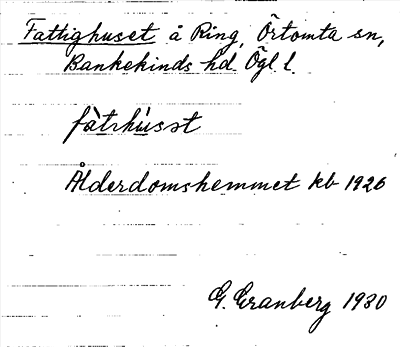 Fattighuset å Ring, Örtomta sn,
Bankekinds hd Ögl l.
fàtshúsət
Ålderdomshemmet kb 1926
G. Granberg 1930